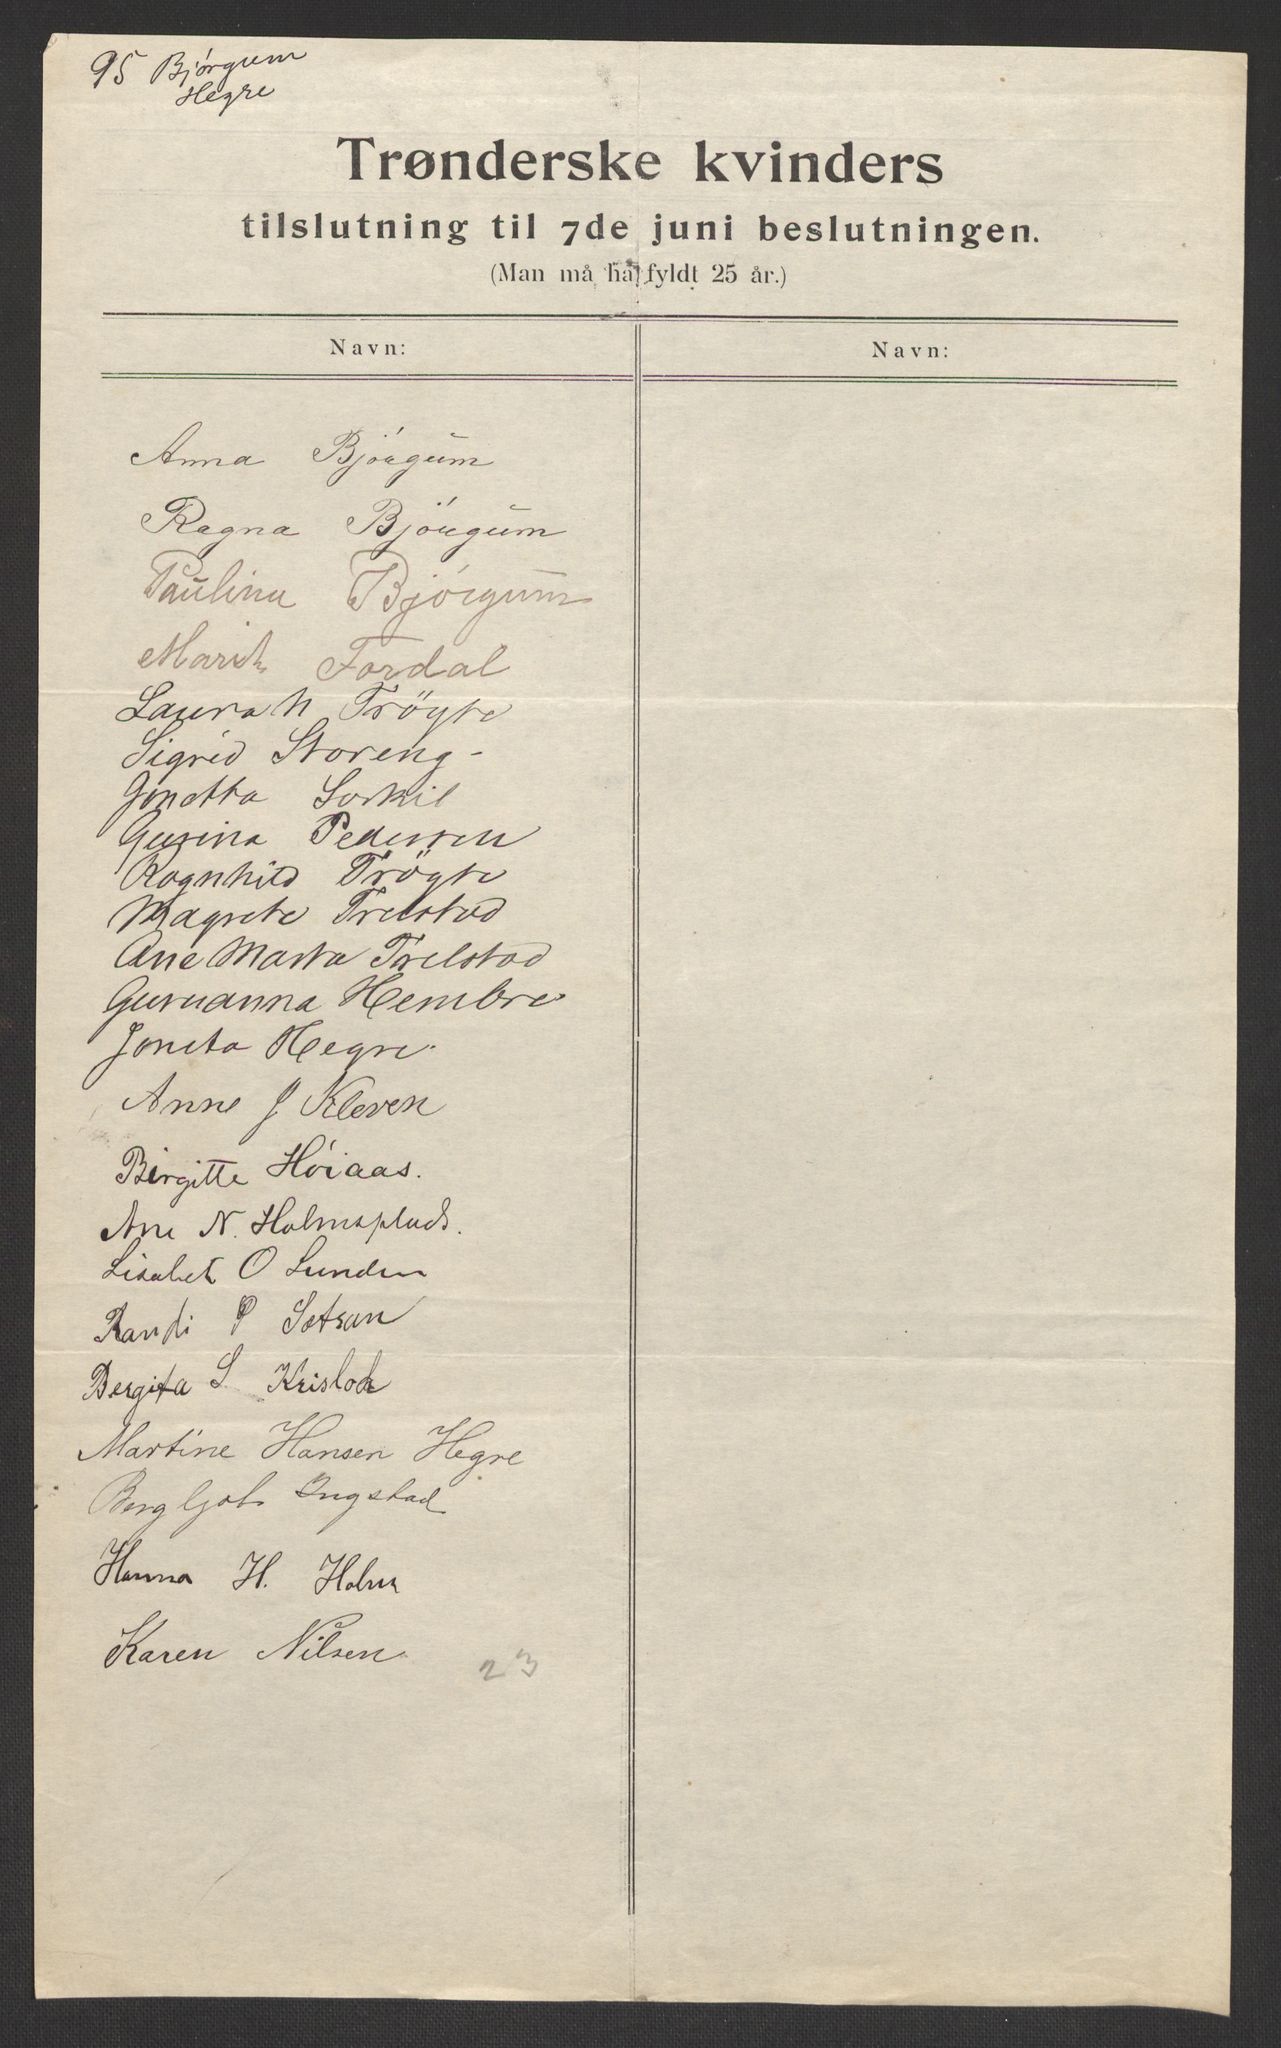 95 Bjórgum
Hegre
Trønderske kvinders
tilslutning til 7de juni beslutningen.
(Man må ha fyldt 25 år.)
Navn:
Navn:
Anna Bjórgum
Ragna Bjórgum
Paulina Bjórgum
Marit Fordal
Laura N Tröyte
Sigrid Storeng
Jonetta
Gurina Pedersen
Ragnhild Tröyte
Magrete Trelstad
Ane Marta Trelstad
Guruanna Hembre
Joneta Hegre
Anne J Kleven
Birgitte Hóiaas.
Ane N. Holmsplads.
Lisabet O Lunden
Randi P Sætran
Bergita S.
Martine Hansen Hegre
Bergljot Ingstad
Hanna H. Holm
Karen Nilsen
23